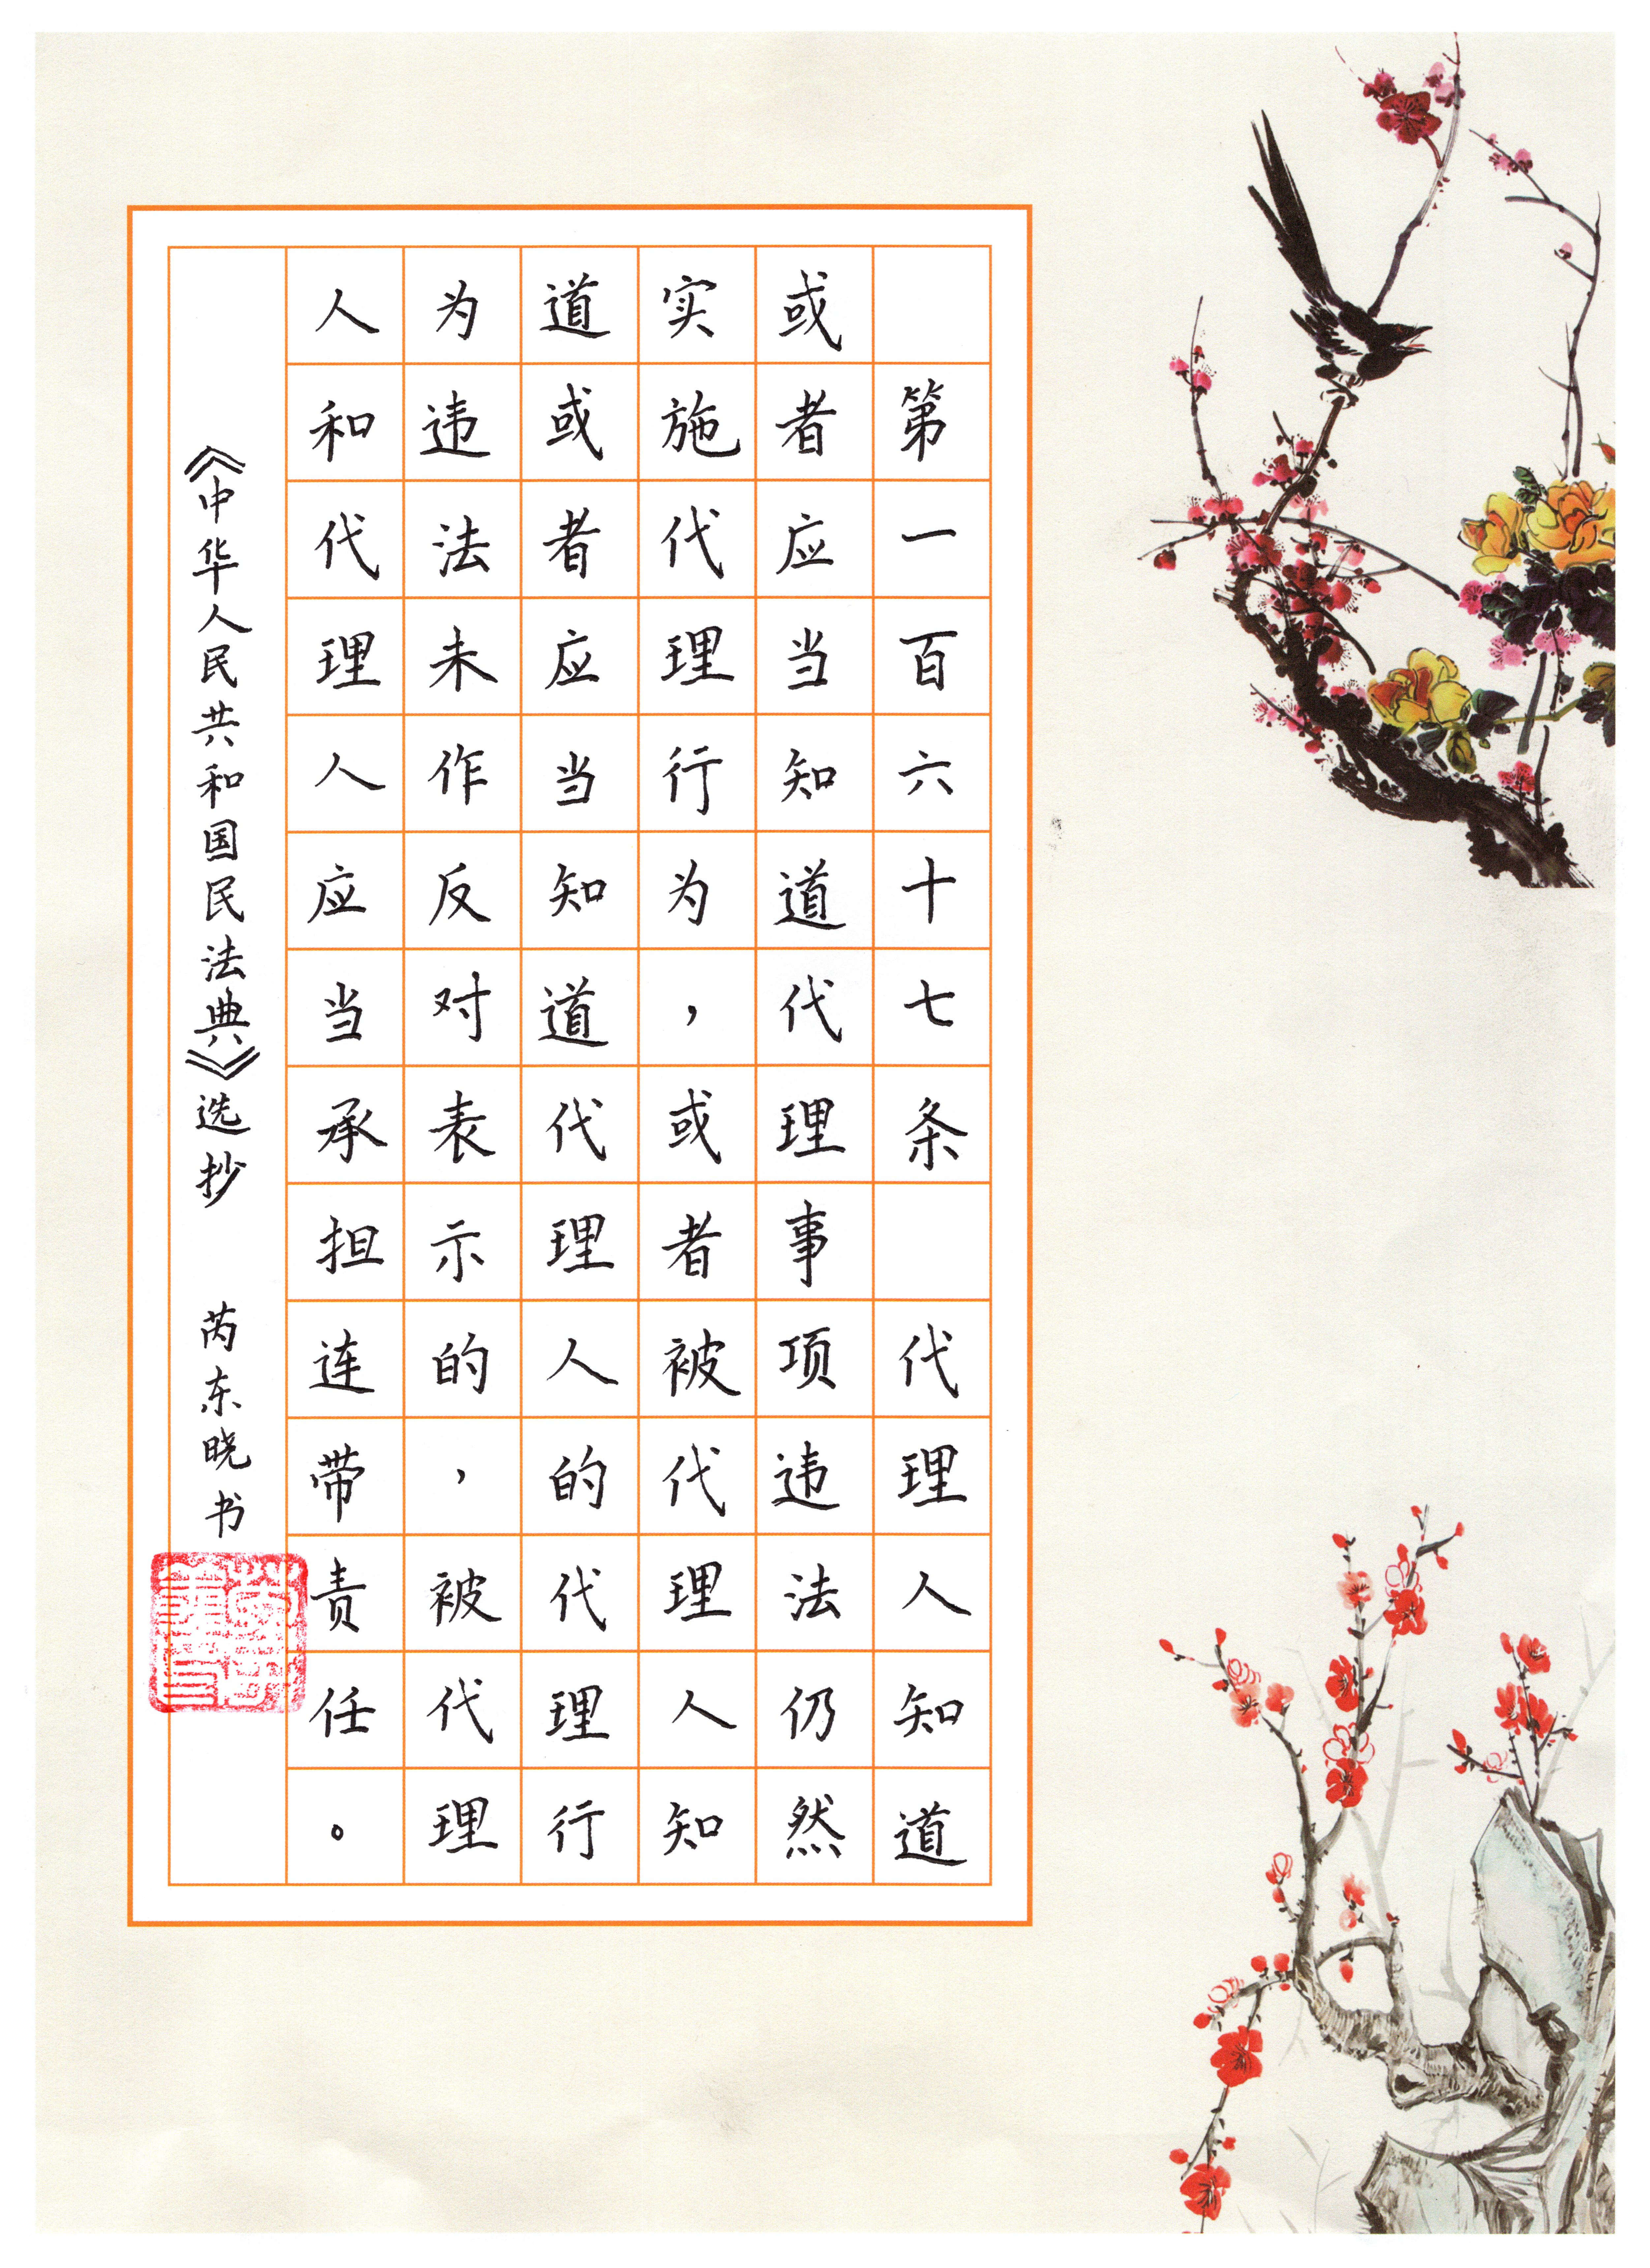 第一百六十七条　代理人知道
或者应当知道代理事项违法仍然
实施代理行为，或者被代理人知
道或者应当知道代理人的代理行
为违法未作反对表示的，被代理
人和代理人应当承担连带责任。
《中华人民共和国民法典》选抄　芮东晓书